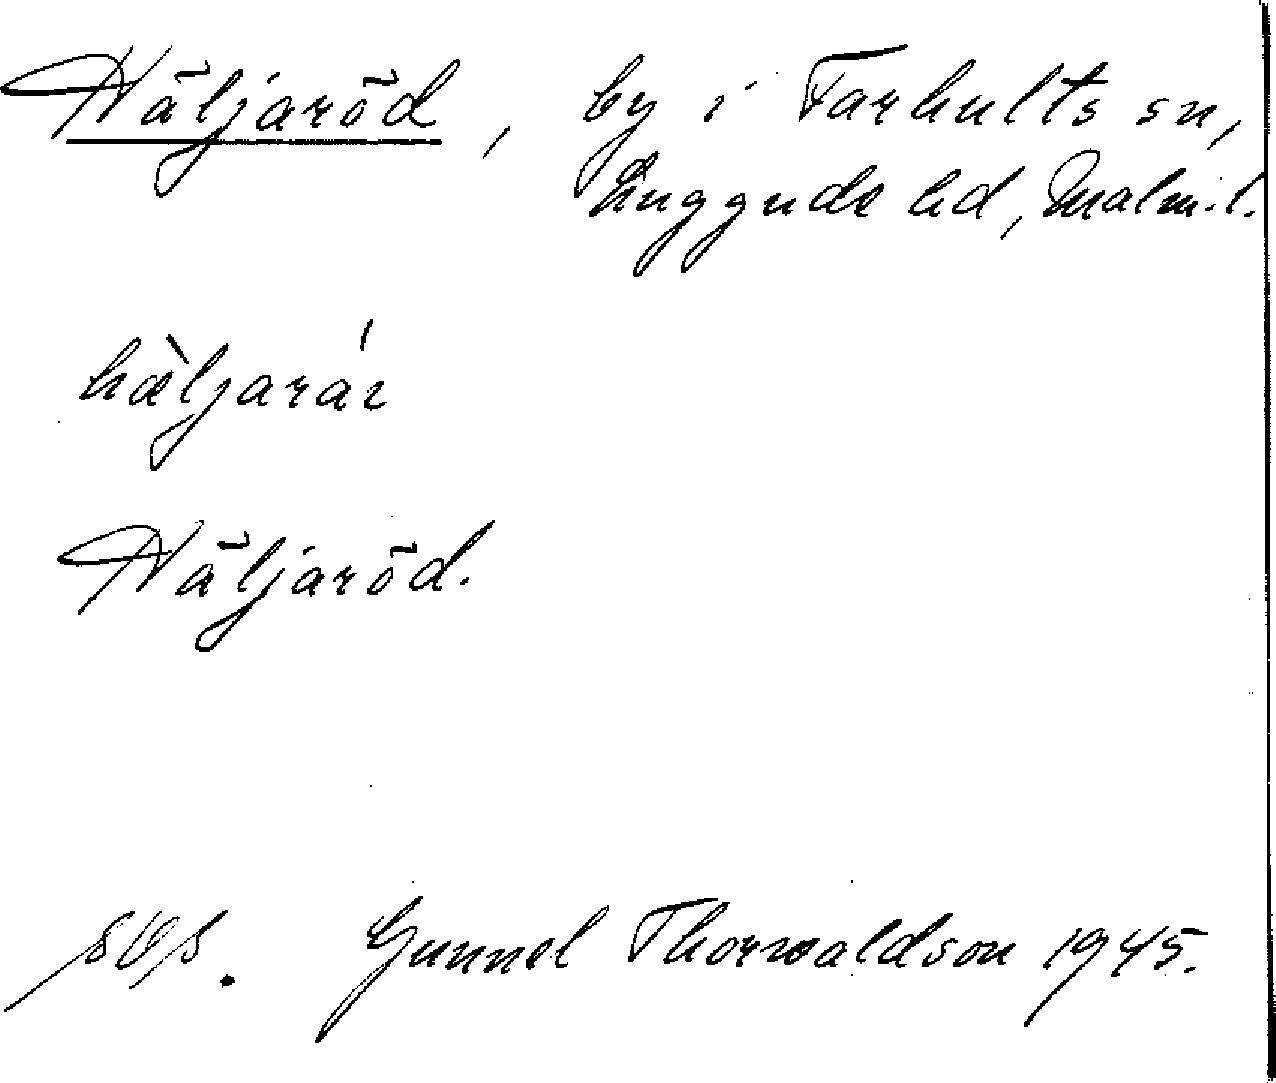 Häljaröd, by i Farhults sn,
Luggude hd, Malm. l.
hæ̀ljarár
Häljaröd.
Gunnel Thorwaldson 1945.